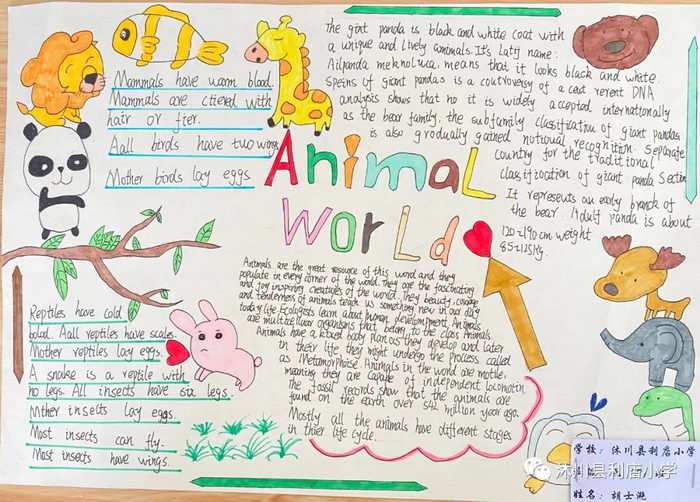 Mammals have warm blood.
Mammals are ctiered with
hair or fier.
Aall birds have two wings
Mother birds lay eggs
The giont panda is black and white coat with
a unique and lively animals. It's Latiy name:
Ailpanda meknoluca. means that it looks black and white.
Speins of giant pandas is a coutroversy of a cent rerent DNA
analysis shows that no it is widely accepted internationally
as the bear family. the subfamily classification of giant pandas
is also grodually gained notiunal recognition. Separate
country for the traditional
classification of giant panda Section
It represents an early branch of
the bear. Adult panda is about
120≥190cm. weight
85≥125kg.
Animal
World
Animals are the great resource of this word and they
populate in every corner of the world. They are the fascinating
and joy inspiring creatules of the world. They beauty, courage
and tenderness of animals teach us something new in our day
today life Ecologists learn about human development, Animals
are multicelluar organisms that belong to the class Animals
Animals have a fixed body plan as they develop and later
in their life they might undergo the process called
as Metamorphise. Animals in the world are motile.
meaning they are capable of independent locomotion
The fossil records show that the animals are
found on the earth over 542 million year ago.
Mostly all the animals have different stages
in thier life cycle.
Reptiles have cold
bolad. Aall reptiles have scales.
Mother reptiles lay eggs.
A snake is a reptile with
no legs. All insects have six legs.
Mther insects lay eggs.
Most insects can fly.
Most insects have wings.
学校：沐川县利店小学
姓名：胡士滟
沐川县利店小学